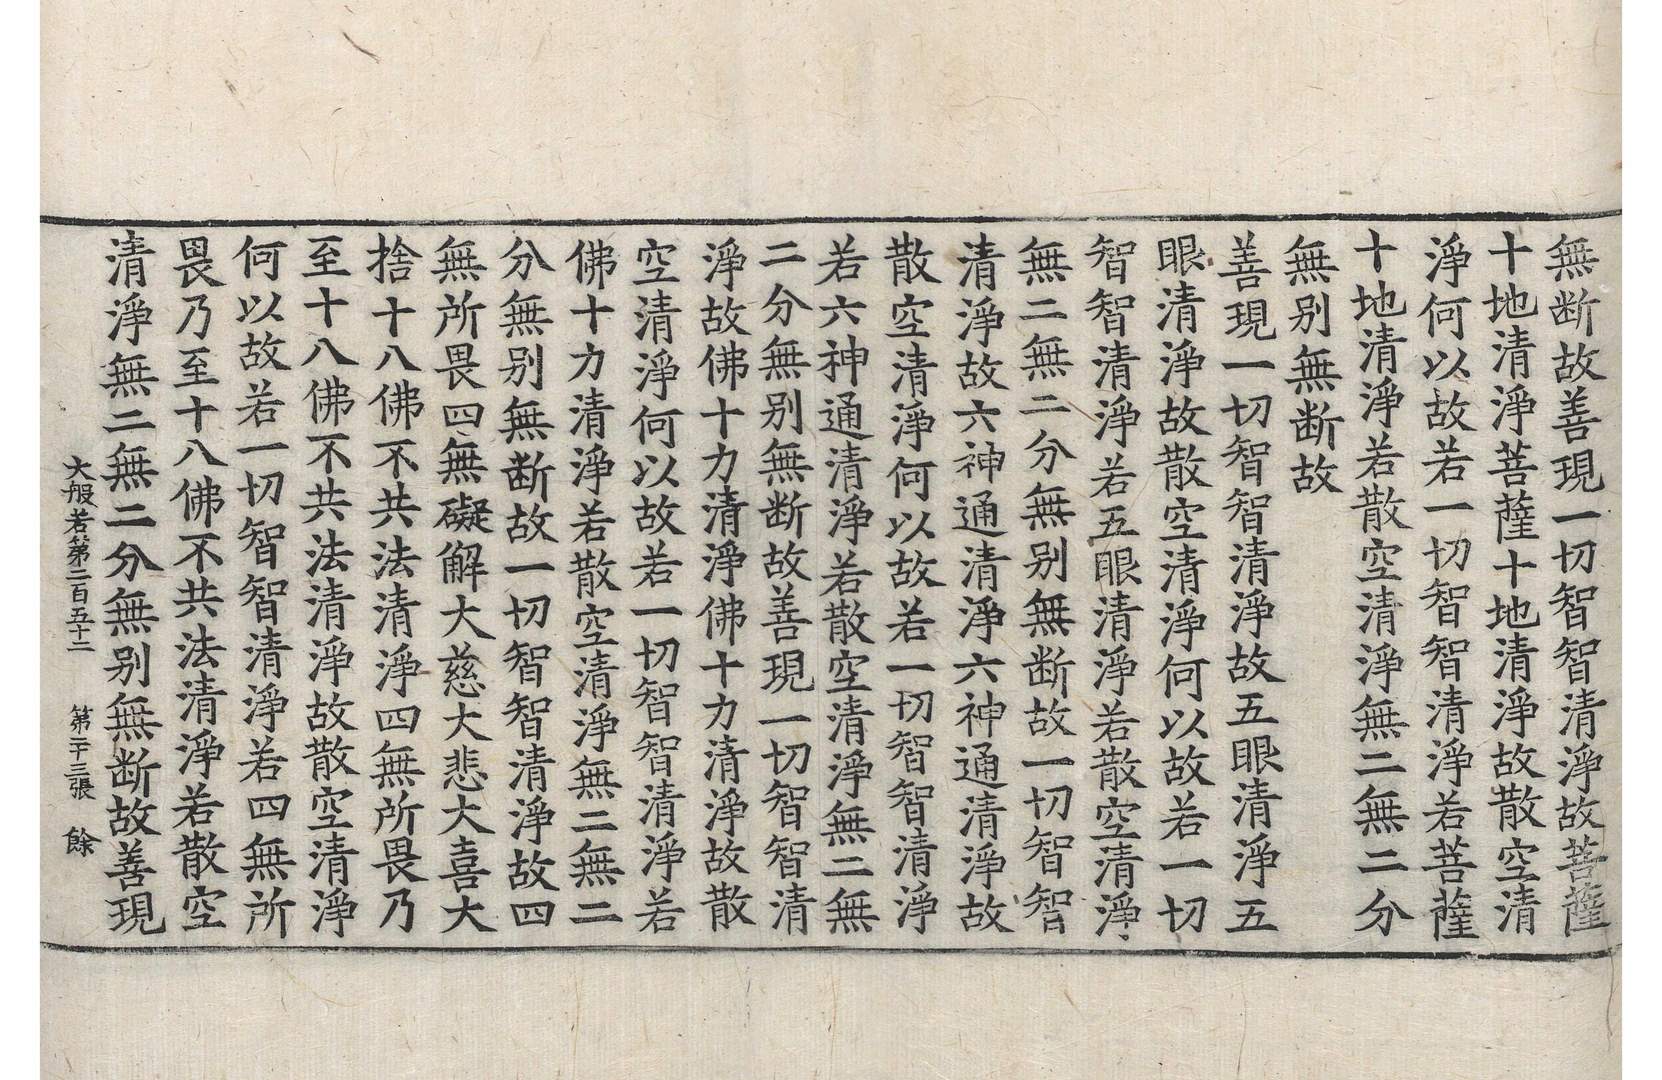 無断故善現一切智智清淨故菩薩
十地清淨菩薩十地清淨故散空清
淨何以故若一切智智清淨若菩薩
十地清淨若散空清淨無二無二分
無别無断故
善現一切智智清淨故五眼清淨五
眼清淨故散空清淨何以故若一切
智智清淨若五眼清淨若散空清淨
無二無二分無别無断故一切智智
清淨故六神通清淨六神通清淨故
散空清淨何以故若一切智智清淨
若六神通清淨若散空清淨無二無
二分無别無断故善現一切智智清
淨故佛十力清淨佛十力清淨故散
空清淨何以故若一切智智清淨若
佛十力清淨若散空清淨無二無二
分無别無断故一切智智清淨故四
無所畏四無礙解大慈大悲大喜大
捨十八佛不共法清淨四無所畏乃
至十八佛不共法清淨故散空清淨
何以故若一切智智清淨若四無所
畏乃至十八佛不共法清淨若散空
清淨無二無二分無别無断故善現
大般若第二百五十二 第二十三張 餘